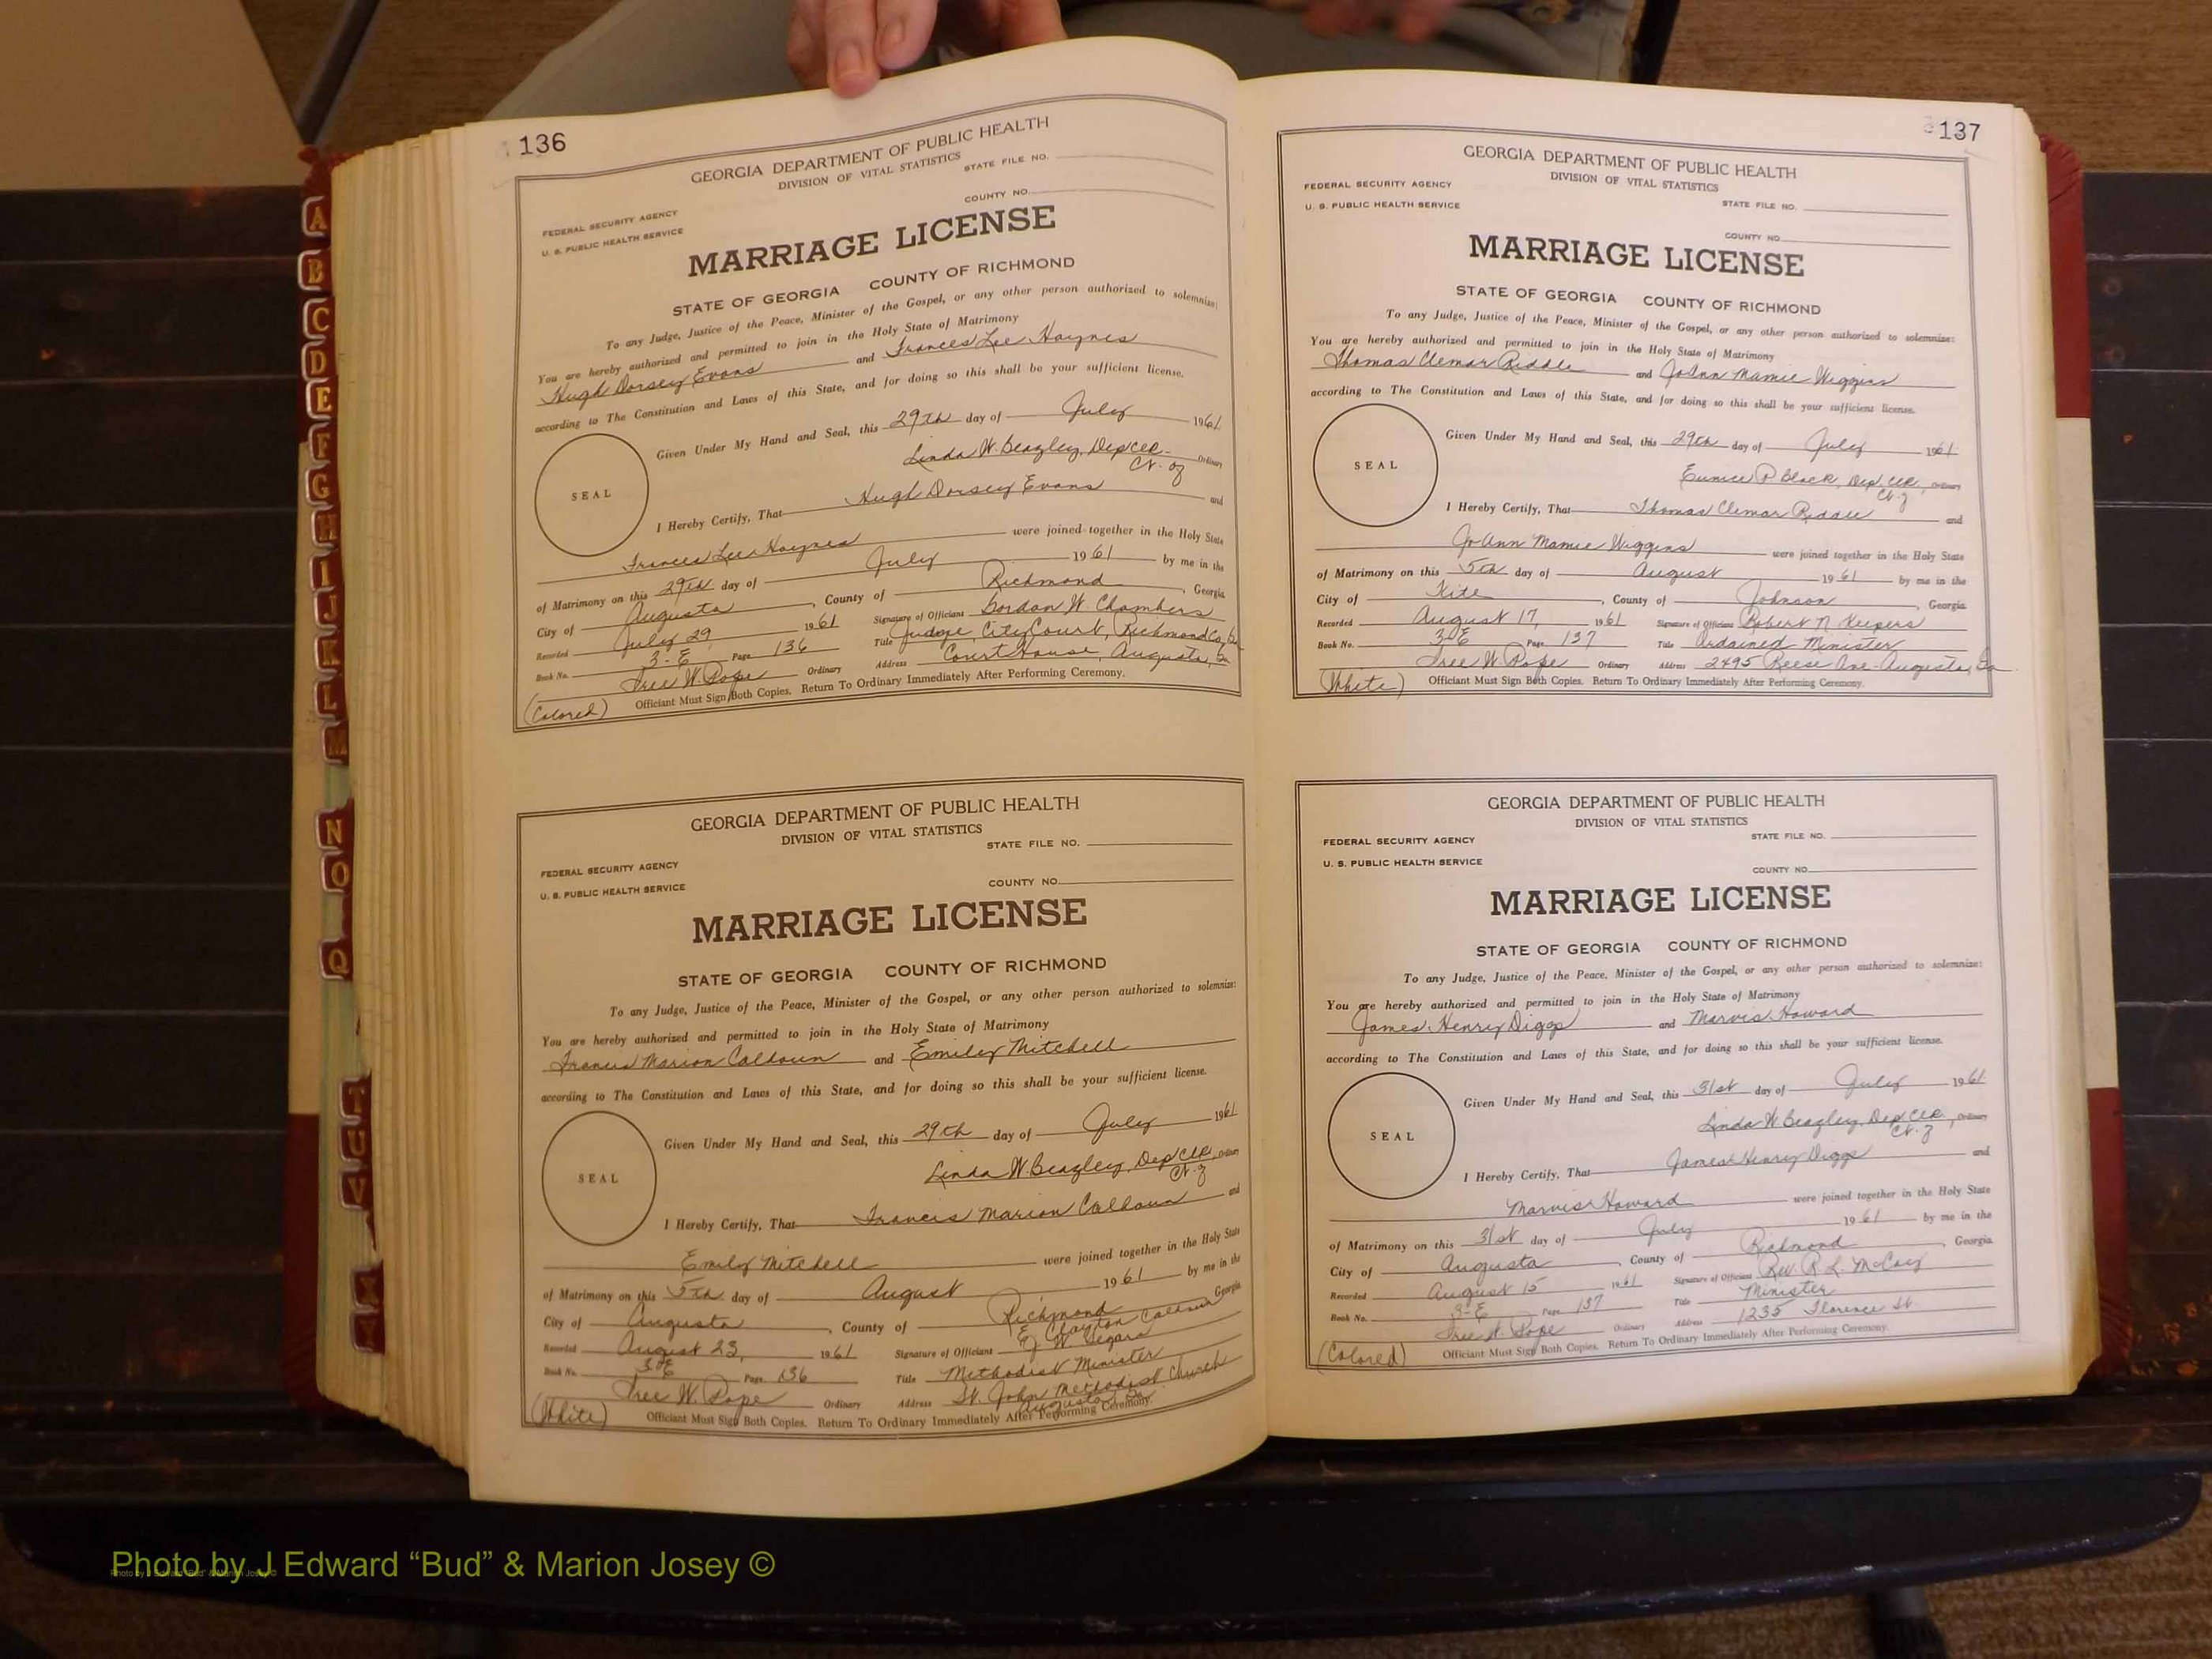 136
GEORGIA DEPARTMENT OF PUBLIC HEALTH
DIVISION OF VITAL STATISTICS
STATE FILE NO.
COUNTY NO.
FEDERAL SECURITY AGENCY
U. S. PUBLIC HEALTH SERVICE
MARRIAGE LICENSE
STATE OF GEORGIA COUNTY OF RICHMOND
To any Judge, Justice of the Peace, Minister of the Gospel, or any other person authorized to solemnize:
You are hereby authorized and permitted to join in the Holy State of Matrimony
Hugh Dorsey Evans and Frances Lee Haynes
according to The Constitution and Laws of this State, and for doing so this shall be your sufficient license.
SEAL
Given Under My Hand and Seal, this 29th day of July 1961
Linda W. Beazley, Dep Clk Ordinary
Ct. of
I Hereby Certify, That Hugh Dorsey Evans and
Frances Lee Haynes were joined together in the Holy State
of Matrimony on this 29th day of July 1961 by me in the
City of Augusta, County of Richmond, Georgia
Recorded July 29 1961 Signature of Officiant Gordon W. Chambers
Book No. 3-E Page 136 Title Judge, City Court, Richmond Co, Ga
Tree W. Pope Ordinary Address Courthouse, Augusta, Ga
(Colored) Officiant Must Sign Both Copies. Return To Ordinary Immediately After Performing Ceremony.
GEORGIA DEPARTMENT OF PUBLIC HEALTH
DIVISION OF VITAL STATISTICS
STATE FILE NO.
FEDERAL SECURITY AGENCY
U. S. PUBLIC HEALTH SERVICE
COUNTY NO.
MARRIAGE LICENSE
STATE OF GEORGIA COUNTY OF RICHMOND
To any Judge, Justice of the Peace, Minister of the Gospel, or any other person authorized to solemnize:
You are hereby authorized and permitted to join in the Holy State of Matrimony
Francis Marion Calhoun and Emily Mitchell
according to The Constitution and Laws of this State, and for doing so this shall be your sufficient license.
SEAL
Given Under My Hand and Seal, this 29th day of July 1961
Linda W. Beazley, Dep Clk, Ordinary
I Hereby Certify, That Francis Marion Calhoun and
Emily Mitchell were joined together in the Holy State
of Matrimony on this 5th day of August 1961 by me in the
City of Augusta, County of Richmond Georgia
E. Clayton Calhoun
Recorded August 23, 1961 Signature of Officiant
Book No. 3-E Page 136 Title Methodist Minister
Tree W. Pope Ordinary Address St. John Methodist Church
Augusta, Ga.
(White) Officiant Must Sign Both Copies. Return To Ordinary Immediately After Performing Ceremony.
137
GEORGIA DEPARTMENT OF PUBLIC HEALTH
DIVISION OF VITAL STATISTICS
FEDERAL SECURITY AGENCY
U. S. PUBLIC HEALTH SERVICE
STATE FILE NO.
COUNTY NO.
MARRIAGE LICENSE
STATE OF GEORGIA COUNTY OF RICHMOND
To any Judge, Justice of the Peace, Minister of the Gospel, or any other person authorized to solemnize:
You are hereby authorized and permitted to join in the Holy State of Matrimony
Thomas Clemar Riddle and JoAnn Mamie Wiggins
according to The Constitution and Laws of this State, and for doing so this shall be your sufficient license.
SEAL
Given Under My Hand and Seal, this 29th day of July 1961
Eunice P Black, Dep. Clk, Ordinary
I Hereby Certify, That Thomas Clemar Riddle and
JoAnn Mamie Wiggins were joined together in the Holy State
of Matrimony on this 5th day of August 1961 by me in the
City of Kite, County of Johnson, Georgia
Recorded August 17, 1961 Signature of Officiant Robert N. Keepers
Book No. 3-E Page 137 Title Ordained Minister
Tree W. Pope Ordinary Address 2495 Reese Ave. Augusta, Ga
(White) Officiant Must Sign Both Copies. Return To Ordinary Immediately After Performing Ceremony.
GEORGIA DEPARTMENT OF PUBLIC HEALTH
DIVISION OF VITAL STATISTICS
STATE FILE NO.
FEDERAL SECURITY AGENCY
U. S. PUBLIC HEALTH SERVICE
COUNTY NO.
MARRIAGE LICENSE
STATE OF GEORGIA COUNTY OF RICHMOND
To any Judge, Justice of the Peace, Minister of the Gospel, or any other person authorized to solemnize:
You are hereby authorized and permitted to join in the Holy State of Matrimony
James Henry Diggs and Marvis Howard
according to The Constitution and Laws of this State, and for doing so this shall be your sufficient license.
SEAL
Given Under My Hand and Seal, this 31st day of July 1961
Linda W Beazley, Dep Clk, Ordinary
I Hereby Certify, That James Henry Diggs and
Marvis Howard were joined together in the Holy State
of Matrimony on this 31st day of July 1961 by me in the
City of Augusta, County of Richmond, Georgia
Recorded August 15 1961 Signature of Officiant Rev. R. L. McCoy
Book No. 3-E Page 137 Title Minister
Tree W. Pope Ordinary Address 1235 Florence St.
(Colored) Officiant Must Sign Both Copies. Return To Ordinary Immediately After Performing Ceremony.
A
B
C
D
E
F
G
H
I
J
K
L
M
N
O
Q
T
U
V
X
Y
Photo by J Edward “Bud” & Marion Josey ©
Photo by J Edward “Bud” & Marion Josey ©